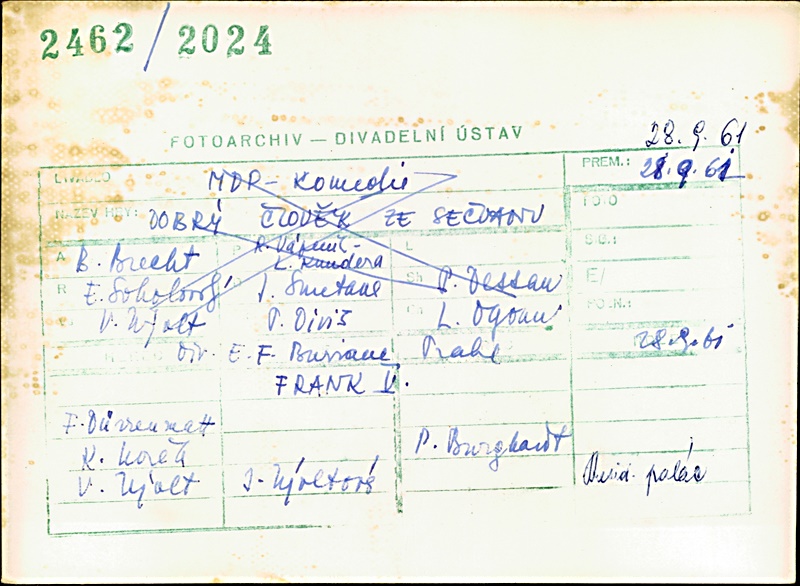 2462/2024
FOTOARCHIV — DIVADELNÍ ÚSTAV
28.9.61
DIVADLO MDP - Komedie PREM.: 28.9.61
NÁZEV HRY: DOBRÝ ČLOVĚK ZE SEČUANU FOTO
A B. Brecht P R. Vápeník - L. Kundera L
R E. Sokolovský J. Smetana Sh P. Dessau E/
V. Nývlt P. Diviš L. Ogoun
Div. E. F. Buriana Praha 28.9.61
FRANK V.
F. Dürrenmatt
P. Burghardt
V. Nývlt J. Nývltová Divad. palác